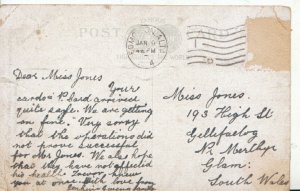 POST CARD
JAN 9
4 PM
Dear Miss Jones
Your
card & P. Card arrived
quite safe. We are getting
on fine. Very sorry
that the operations did
not prove successful
for Mr Jones. We also hope
that they have not affected
his health. Trevor, answer
you at once. With love from
Miss Jones.
193 High St
Gellifaelog
Nr. Merthyr
Glam:
South Wales